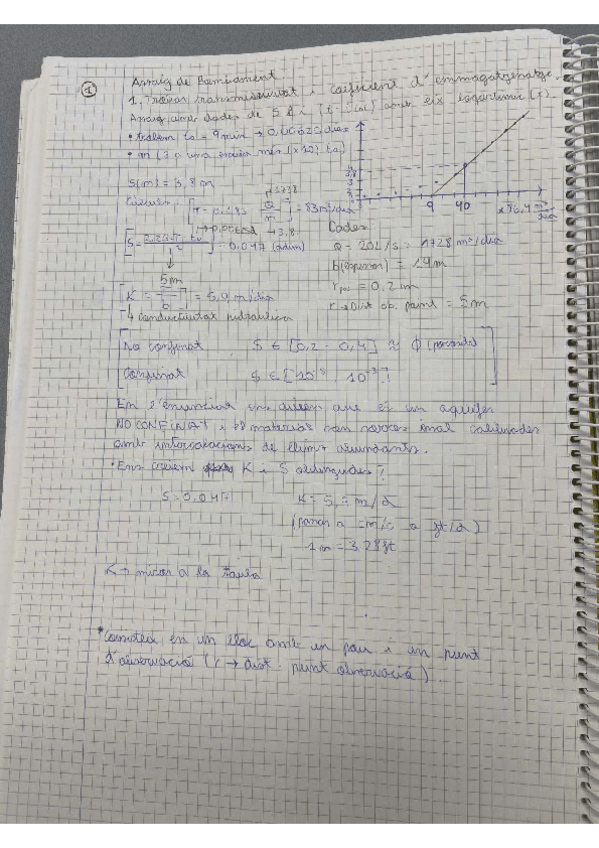 ①
Assaig de Bombament
1. Trobar transmissivitat i coeficient d'emmagatzematge.
dades de S i eix logarítmic (t).
• trobem to = 9min → 0,00625 dies
• m (3 a una
S(m) = 3,8 m
1728
T = 0,183 Q/m = 83 m²/dia
→ 0,00625 → 3,8
S = to/r² = 0,047 (adim)
↓
5m
K = T/b = 5,9 m/dia
↳ conductivitat hidràulica
9 40
Dades
Q = 20L/s = 1728 m³/dia
b(espesor) = 14m
r pou = 0,2 m
r → Dist ob. punt = 5m
No confinat S ∈ [0,2 - 0,4] ≈ ϕ
Confinat S ∈ [10⁻⁵, 10⁻³]
En l'enunciat ens diuen que és un aqüífer
NO CONFINAT i el material son sorres mal calibrades
amb intercalacions de llims abundants.
• Ens creiem K i S obtingudes?
S = 0,047 K = 5,9 m/d
(passar a cm/s o ft/d)
1m = 3,28ft
K → mirar a la taula
* Consisteix en un lloc amb un pou i un punt
d'observació (r → dist - punt observació)